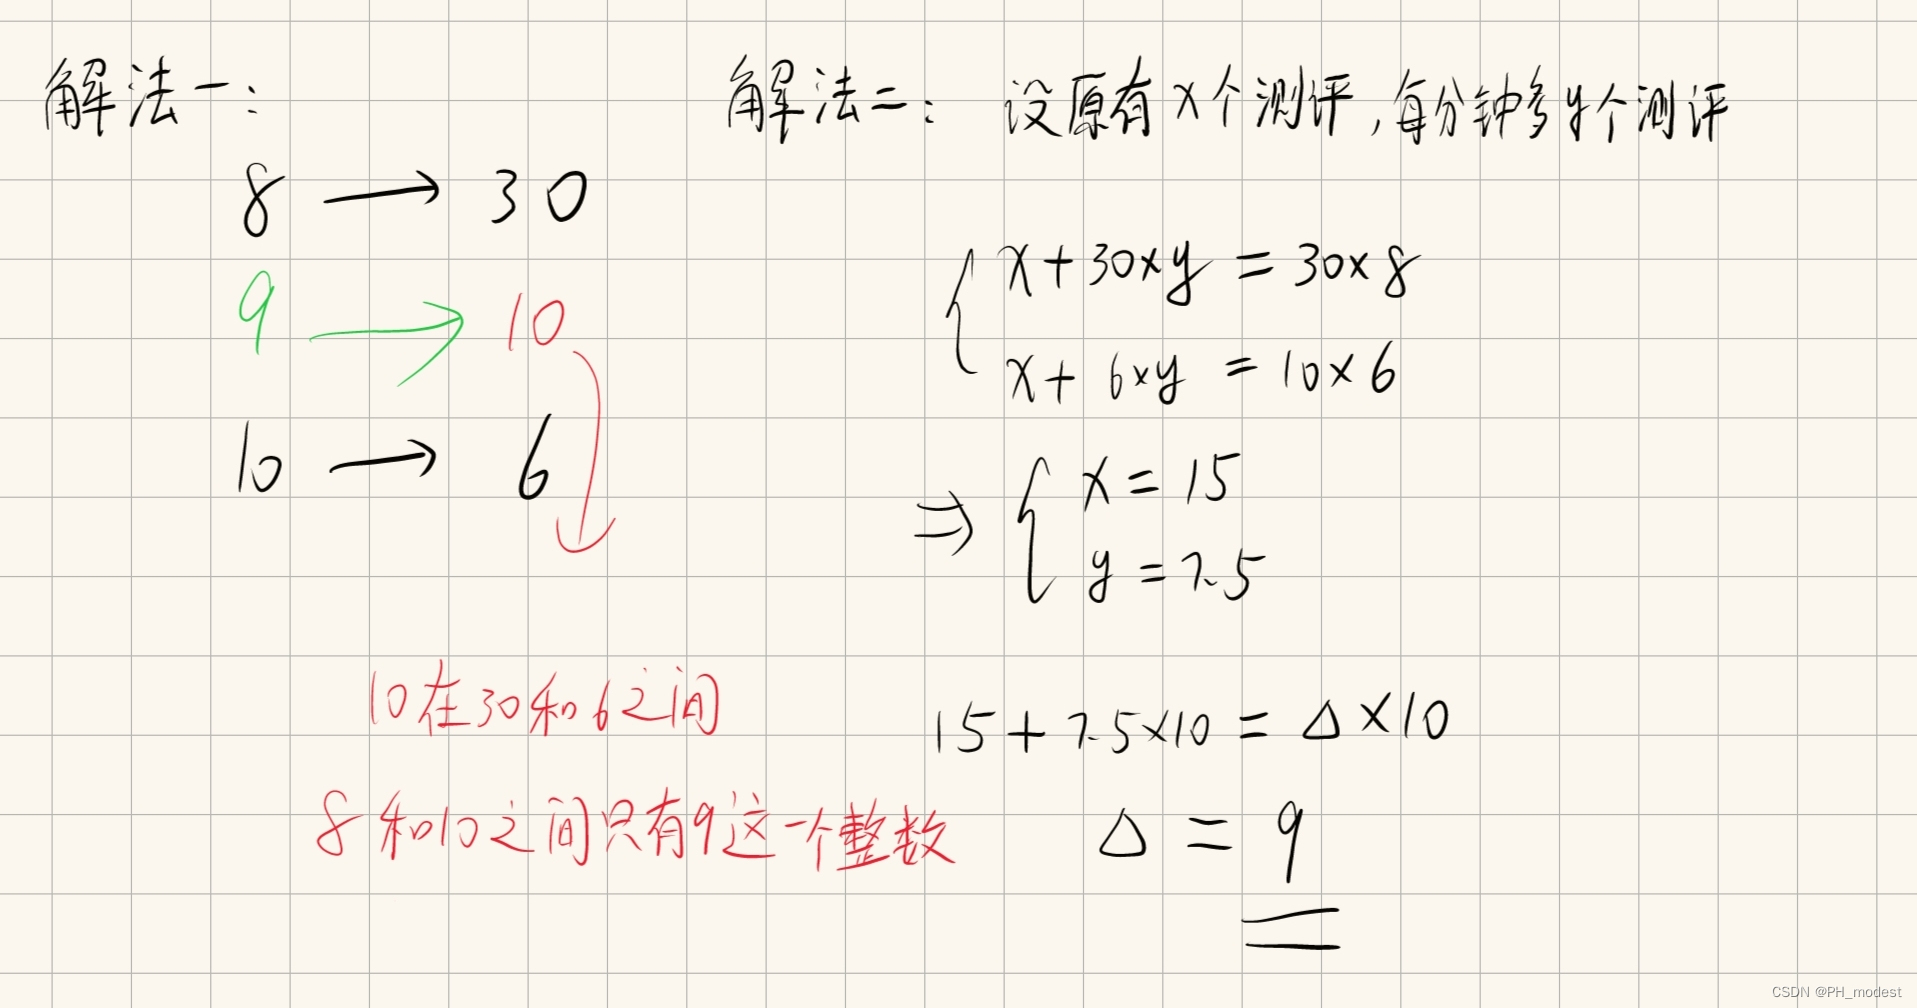 解法一：
8 → 30
9 → 10
10 → 6
10在30和6之间
8和10之间只有9这一个整数
解法二： 设原有x个测评,每分钟多y个测评
x+30×y = 30×8
x+6×y = 10×6
⇒ { x = 15
y = 7.5
15+7.5×10 = Δ×10
Δ = 9
CSDN @PH_modest